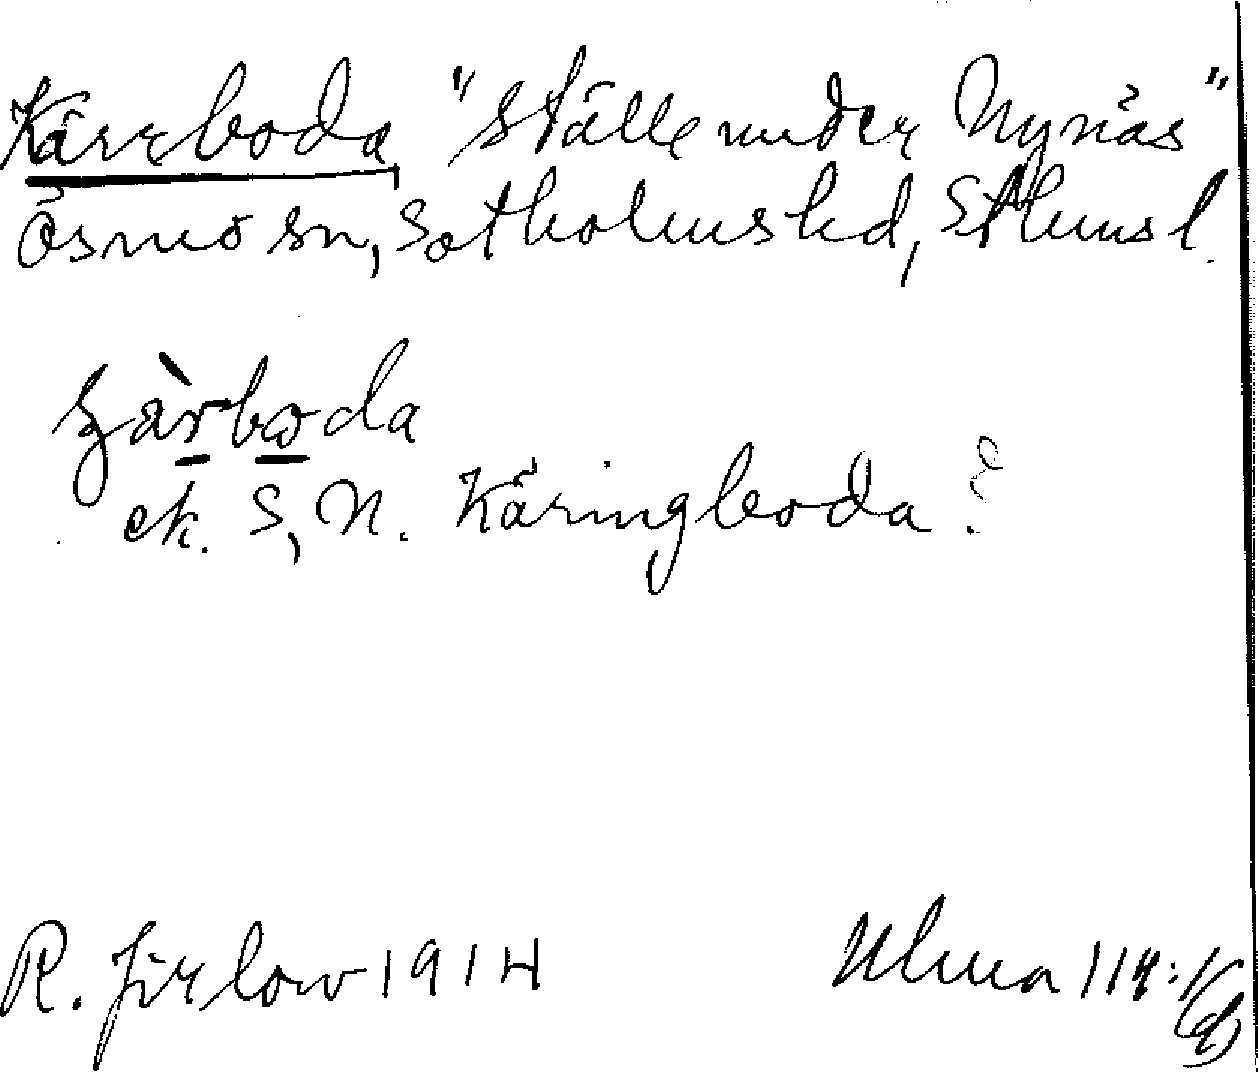 Kärrboda "ställe under Nynäs"
Ösmo sn, Sotholms hd, Sthms l.
ek. S, N. Käringboda?
R. Jirlow 1914
Ulma 114: